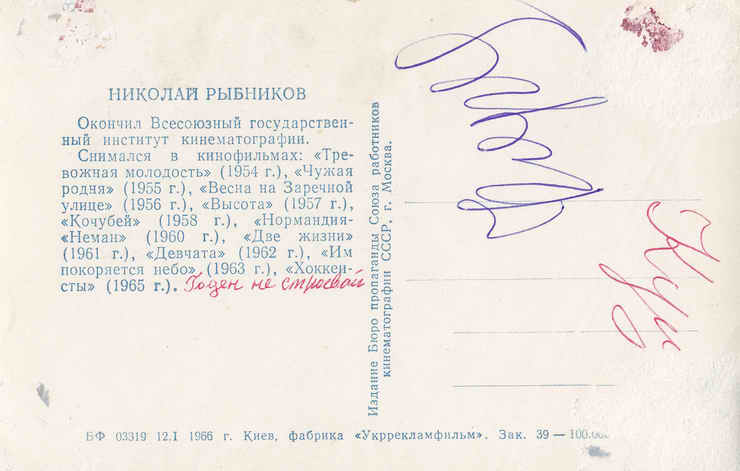 НИКОЛАЙ РЫБНИКОВ
Окончил Всесоюзный государствен-
ный институт кинематографии.
Снимался в кинофильмах: «Тре-
вожная молодость» (1954 г.), «Чужая
родня» (1955 г.), «Весна на Заречной
улице» (1956 г.), «Высота» (1957 г.),
«Кочубей» (1958 г.), «Нормандия-
«Неман» (1960 г.), «Две жизни»
(1961 г.), «Девчата» (1962 г.), «Им
покоряется небо» (1963 г.), «Хоккеи-
сты» (1965 г.). Годен не строевой
Издание Бюро пропаганды Союза работников
кинематографии СССР, г. Москва.
БФ 03319 12.I 1966 г. Киев, фабрика «Укррекламфильм». Зак. 39 — 100.000